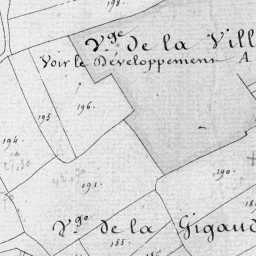 198.
Vge. de la Vill
Voir le Développement A
196.
195
194.
190.
191.
Vgo. de la Gigaud
185